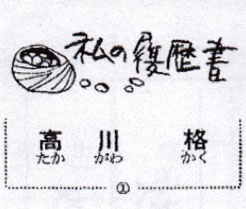 私の履歴書
高川 格
たか がわ かく
①